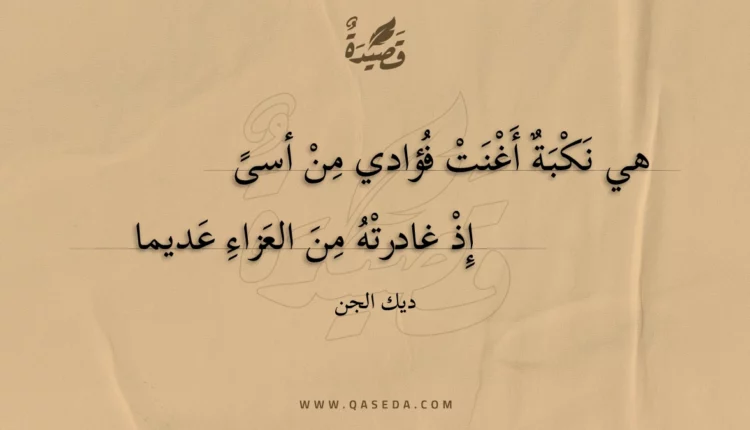 قَصِيْدَةٌ
هي نَكْبَةٌ أَغْنَتْ فُؤادي مِنْ أسىً
إِذْ غادرتْهُ مِنَ العَزاءِ عَديما
ديك الجن
WWW.QASEDA.COM